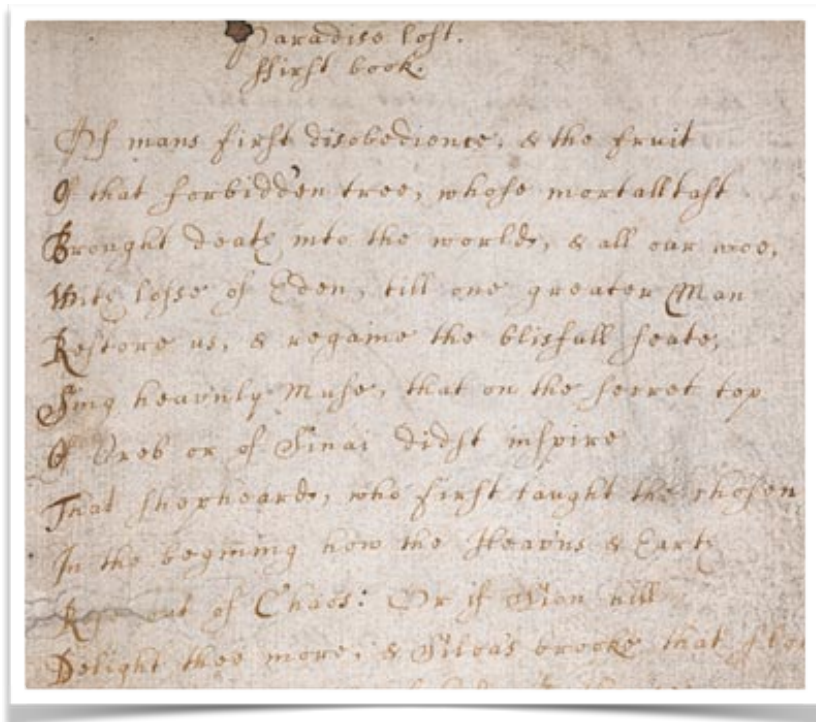 Paradise lost.
ffirst book.
Of mans first disobedience, & the fruit
Of that forbidden tree, whose mortall tast
Brought death into the world, & all our woe,
With losse of Eden, till one greater Man
Restore us, & regaine the blisfull seate,
Sing heav'nly Muse, that on the secret top
Of Oreb or of Sinai didst inspire
That shepheard, who first taught the chosen
In the beginning how the Heavns & Earth
Rose out of Chaos: Or if Sion hill
Delight thee more, & Siloas brooke that